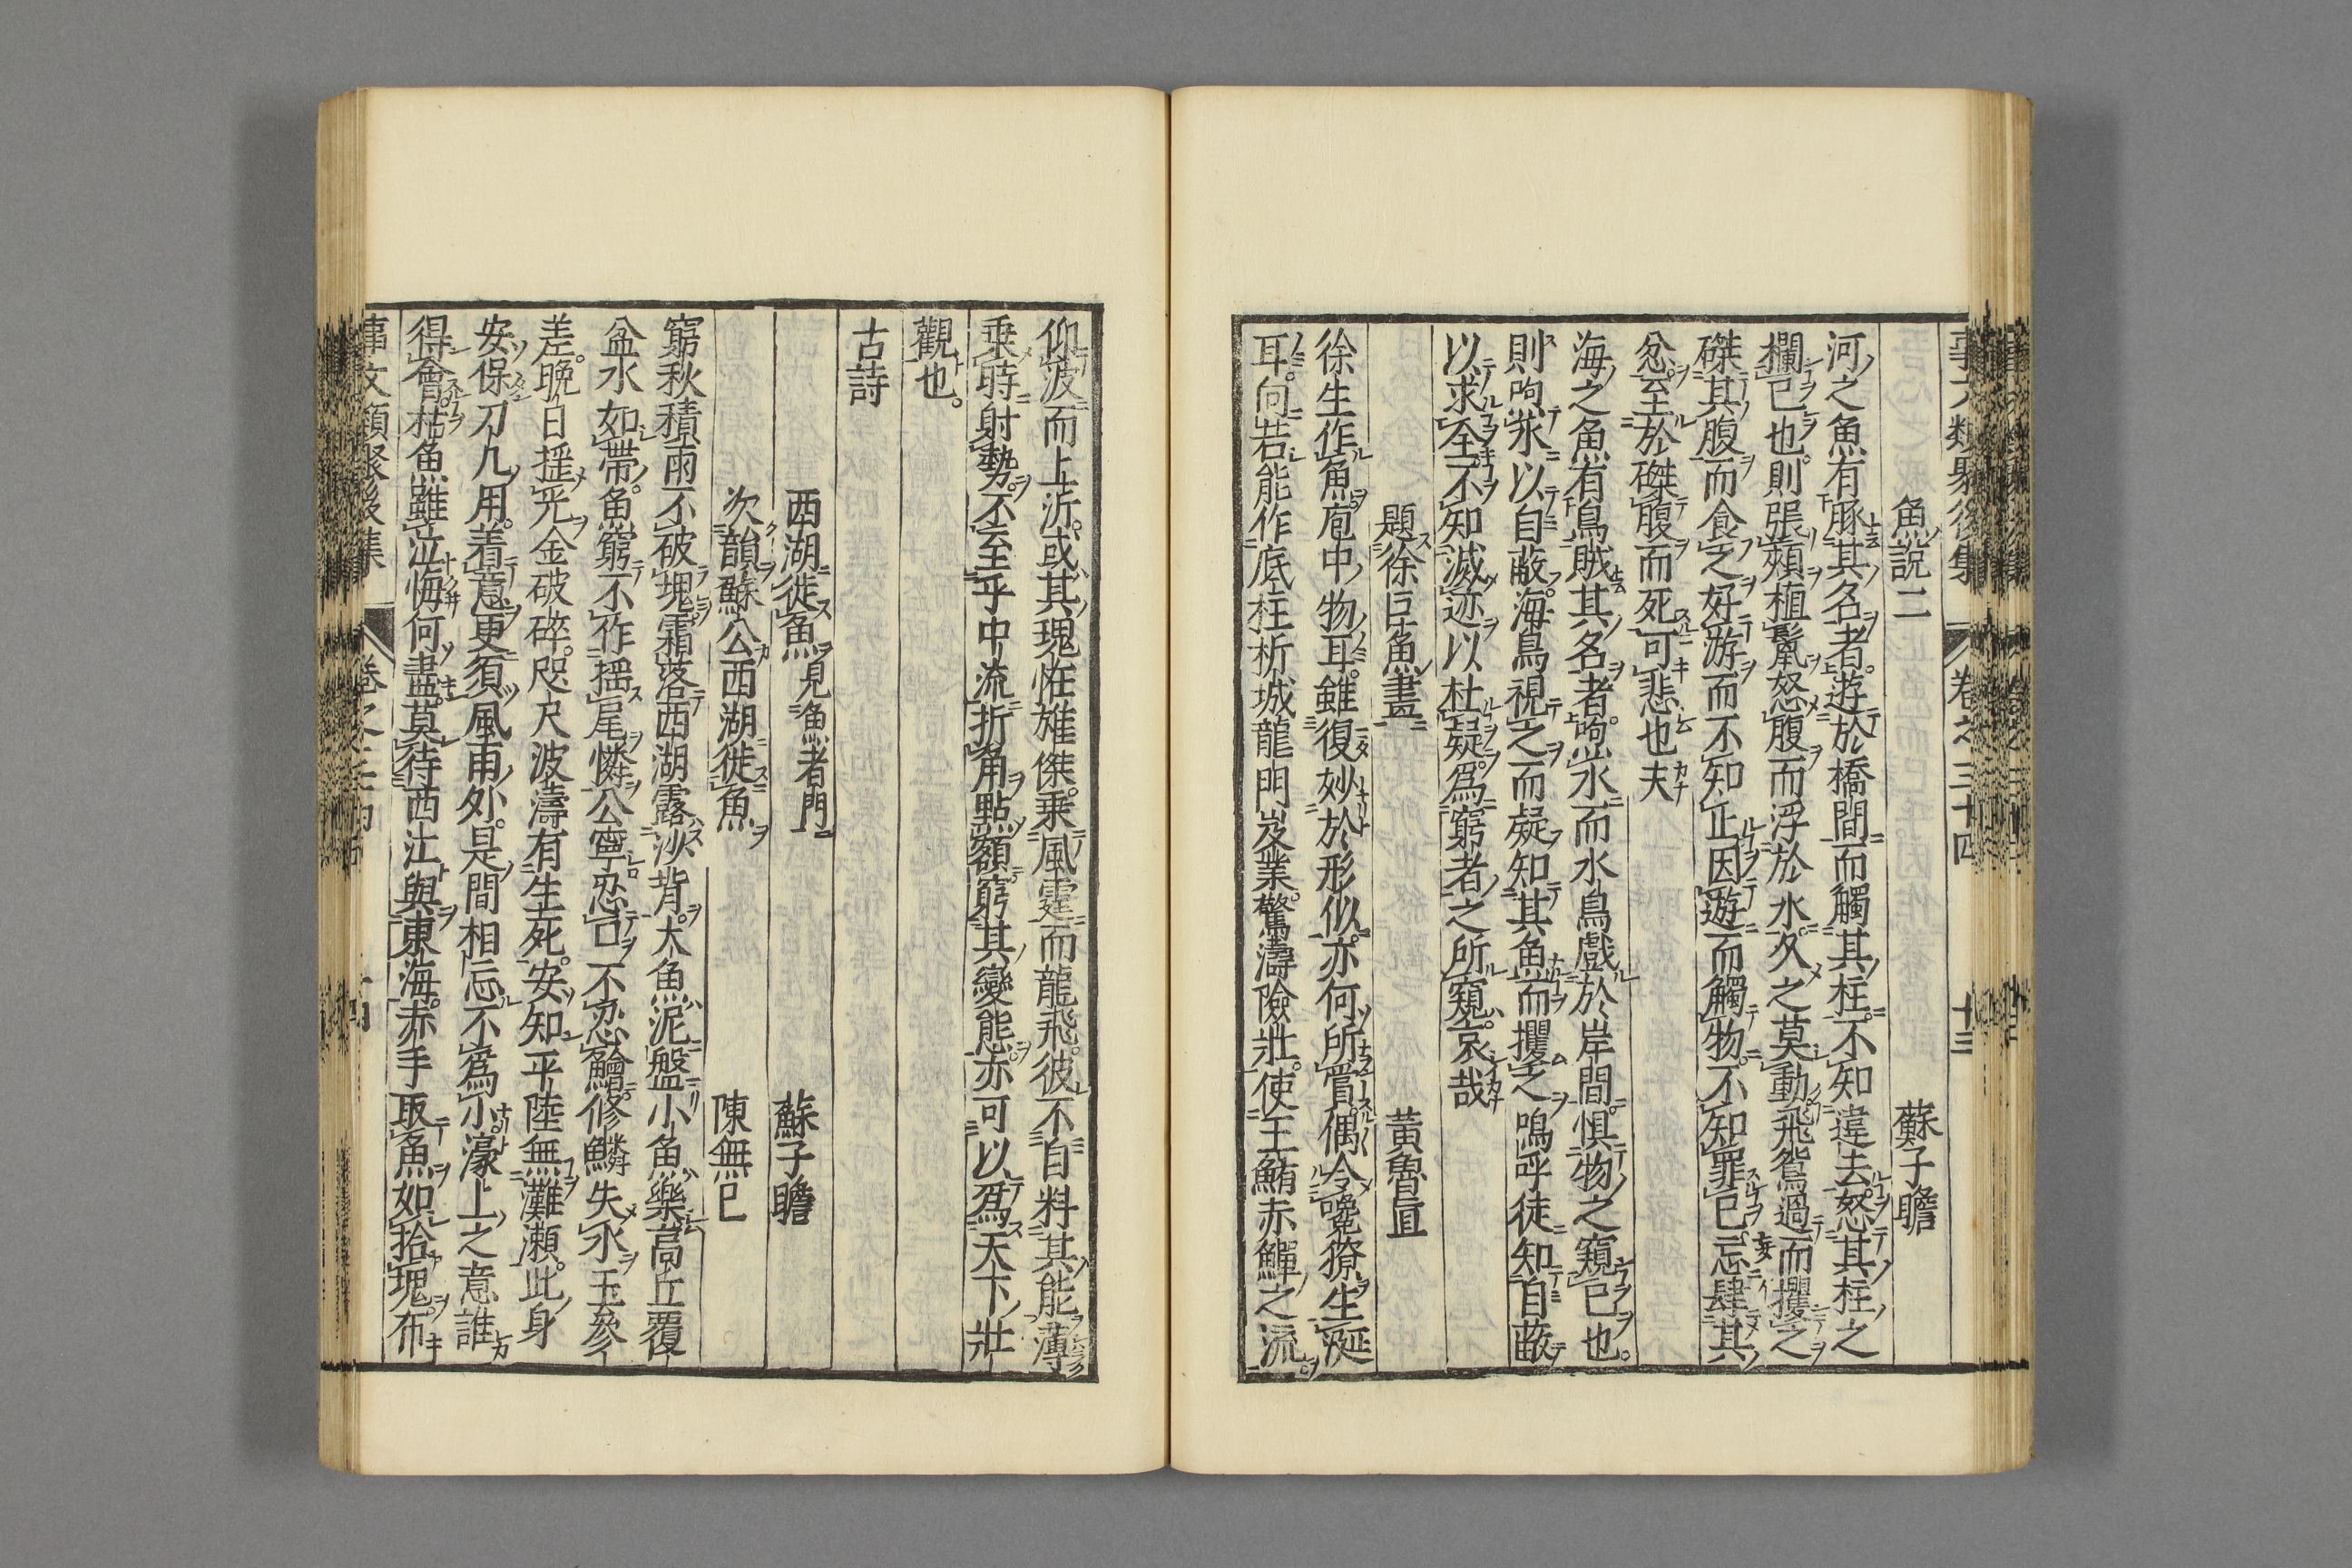 魚説二　蘇子瞻
河之魚有豚其名者遊於橋間而觸其柱不知違去怒其柱之
欄已也則張頰植鬣怒腹而浮於水久之莫動飛鳶過而攫之
磔其腹而食之好游而不知止因遊而觸物不知罪已妄肆其
忿至於磔腹而死可悲也夫
海之魚有烏賊其名者呴水而水烏戲於岸間惧物之窺已也
則呴水以自蔽海烏視之而疑知其魚而攫之嗚呼徒知自蔽
以求全不知滅迹以杜疑爲窮者之所窺哀哉
題徐巨魚畫　黃魯直
徐生作魚庖中物耳雖復妙於形似亦何所賞偶令嚵獠生涎
耳向若能作底柱析城龍門岌業驚濤險壯使王鮪赤鱓之流
仰波而上泝或其瑰怪雄傑乘風霆而龍飛彼不自料其能薄
乗時射勢不至乎中流折角點額窮其變態亦可以爲天下壯
觀也
古詩
西湖徙魚見漁者門　蘇子瞻
次韻蘇公西湖徙魚　陳無已
窮秋積雨不破塊霜落西湖露沙背大魚泥盤小魚樂高丘覆
盆水如帶魚窮不作揺尾憐公寧忍口不忍鱠修鱗失水玉參
差晩日揺光金破碎咫尺波濤有生死安知平陸無灘瀬此身
安保刀几用着意更須風雨外是間相忘不爲小濠上之意誰
得會枯魚雖泣悔何盡莫待西江與東海赤手取魚如拾塊布